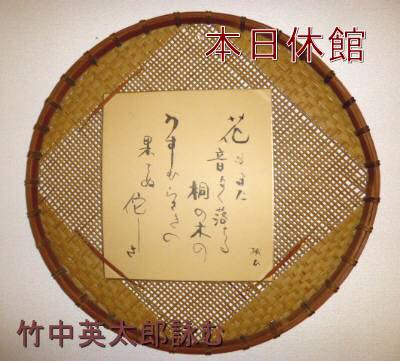 本日休館
花もまた
音なく落ちる
桐の木の
うすむらさきの
果てぬ 佗しさ
竹中英太郎詠む